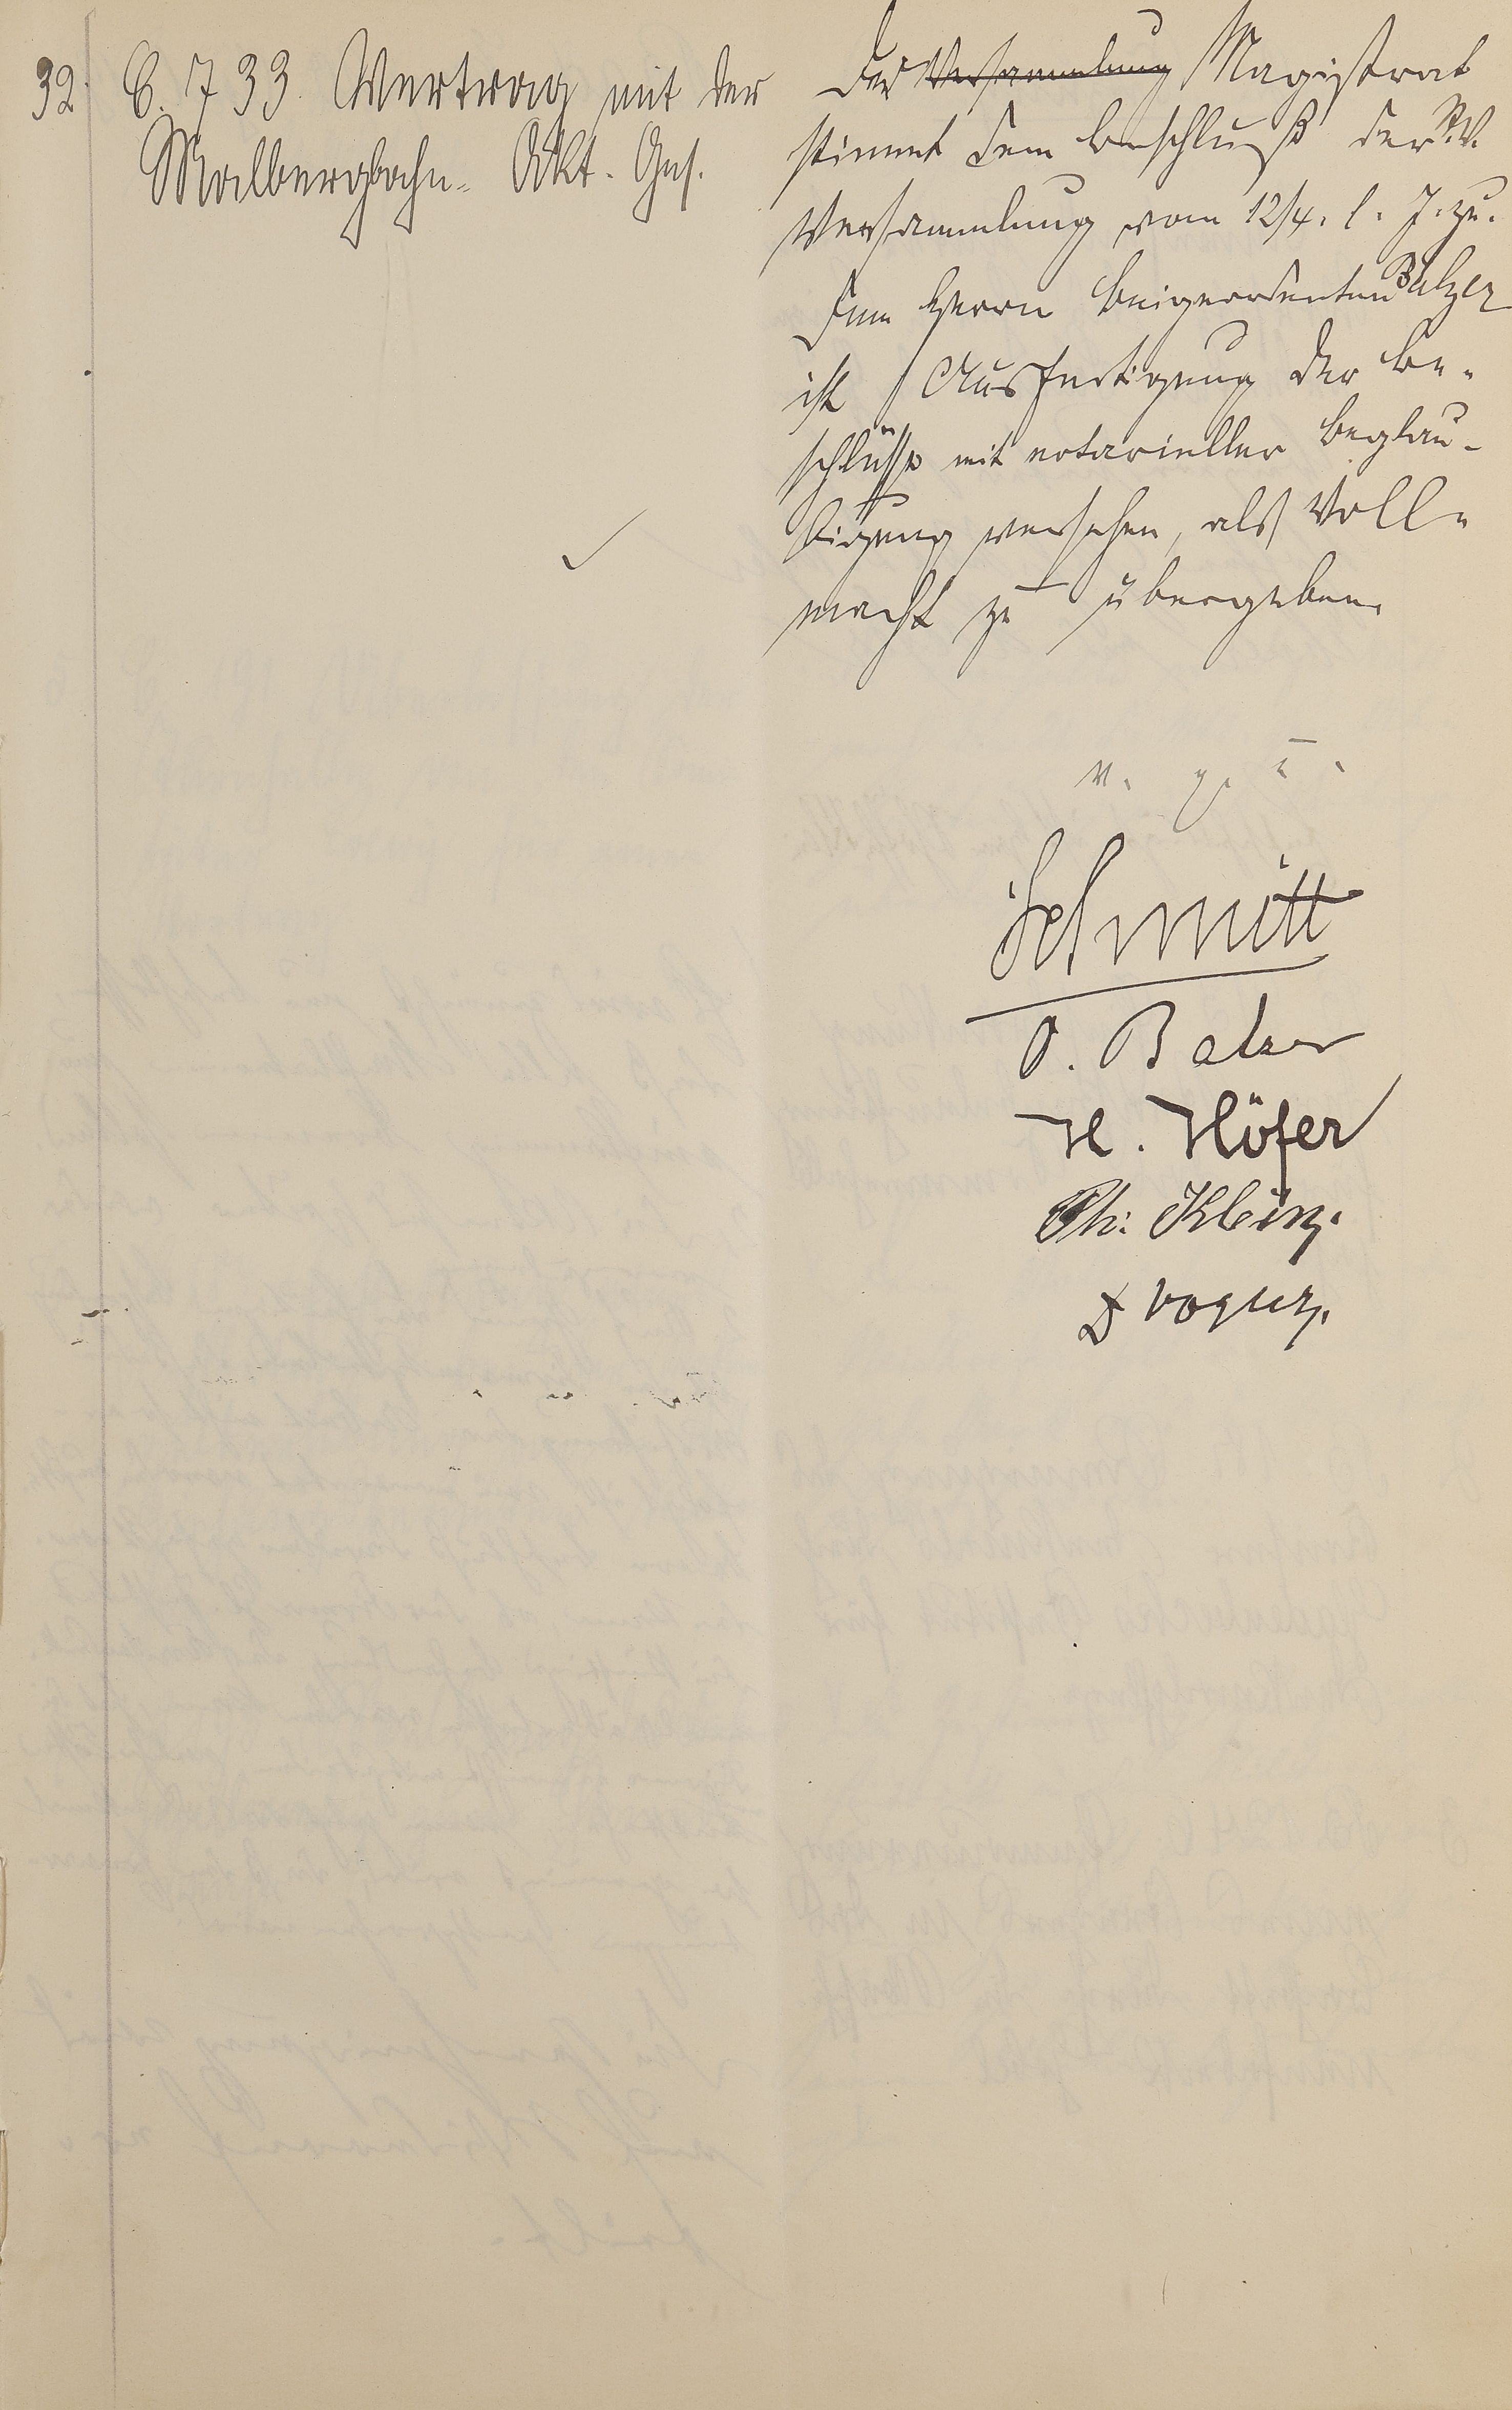 32. C. 733. Vertrag mit der
Malbergbahn-Akt. Ges.
Der Versammlung Magistrat
stimmt dem Beschluß der St. V.
Versammlung vom 12/4. l. J. zu.
Dem Herrn Beigeordneten Balzer
ist Ausfertigung der Be-
schlüsse mit notarieller Beglau-
bigung versehen, als Voll-
macht zu übergeben.
v. g. u.
Schmitt
O. Balzer
H. Höfer
Ph. Klein.
Vogler.